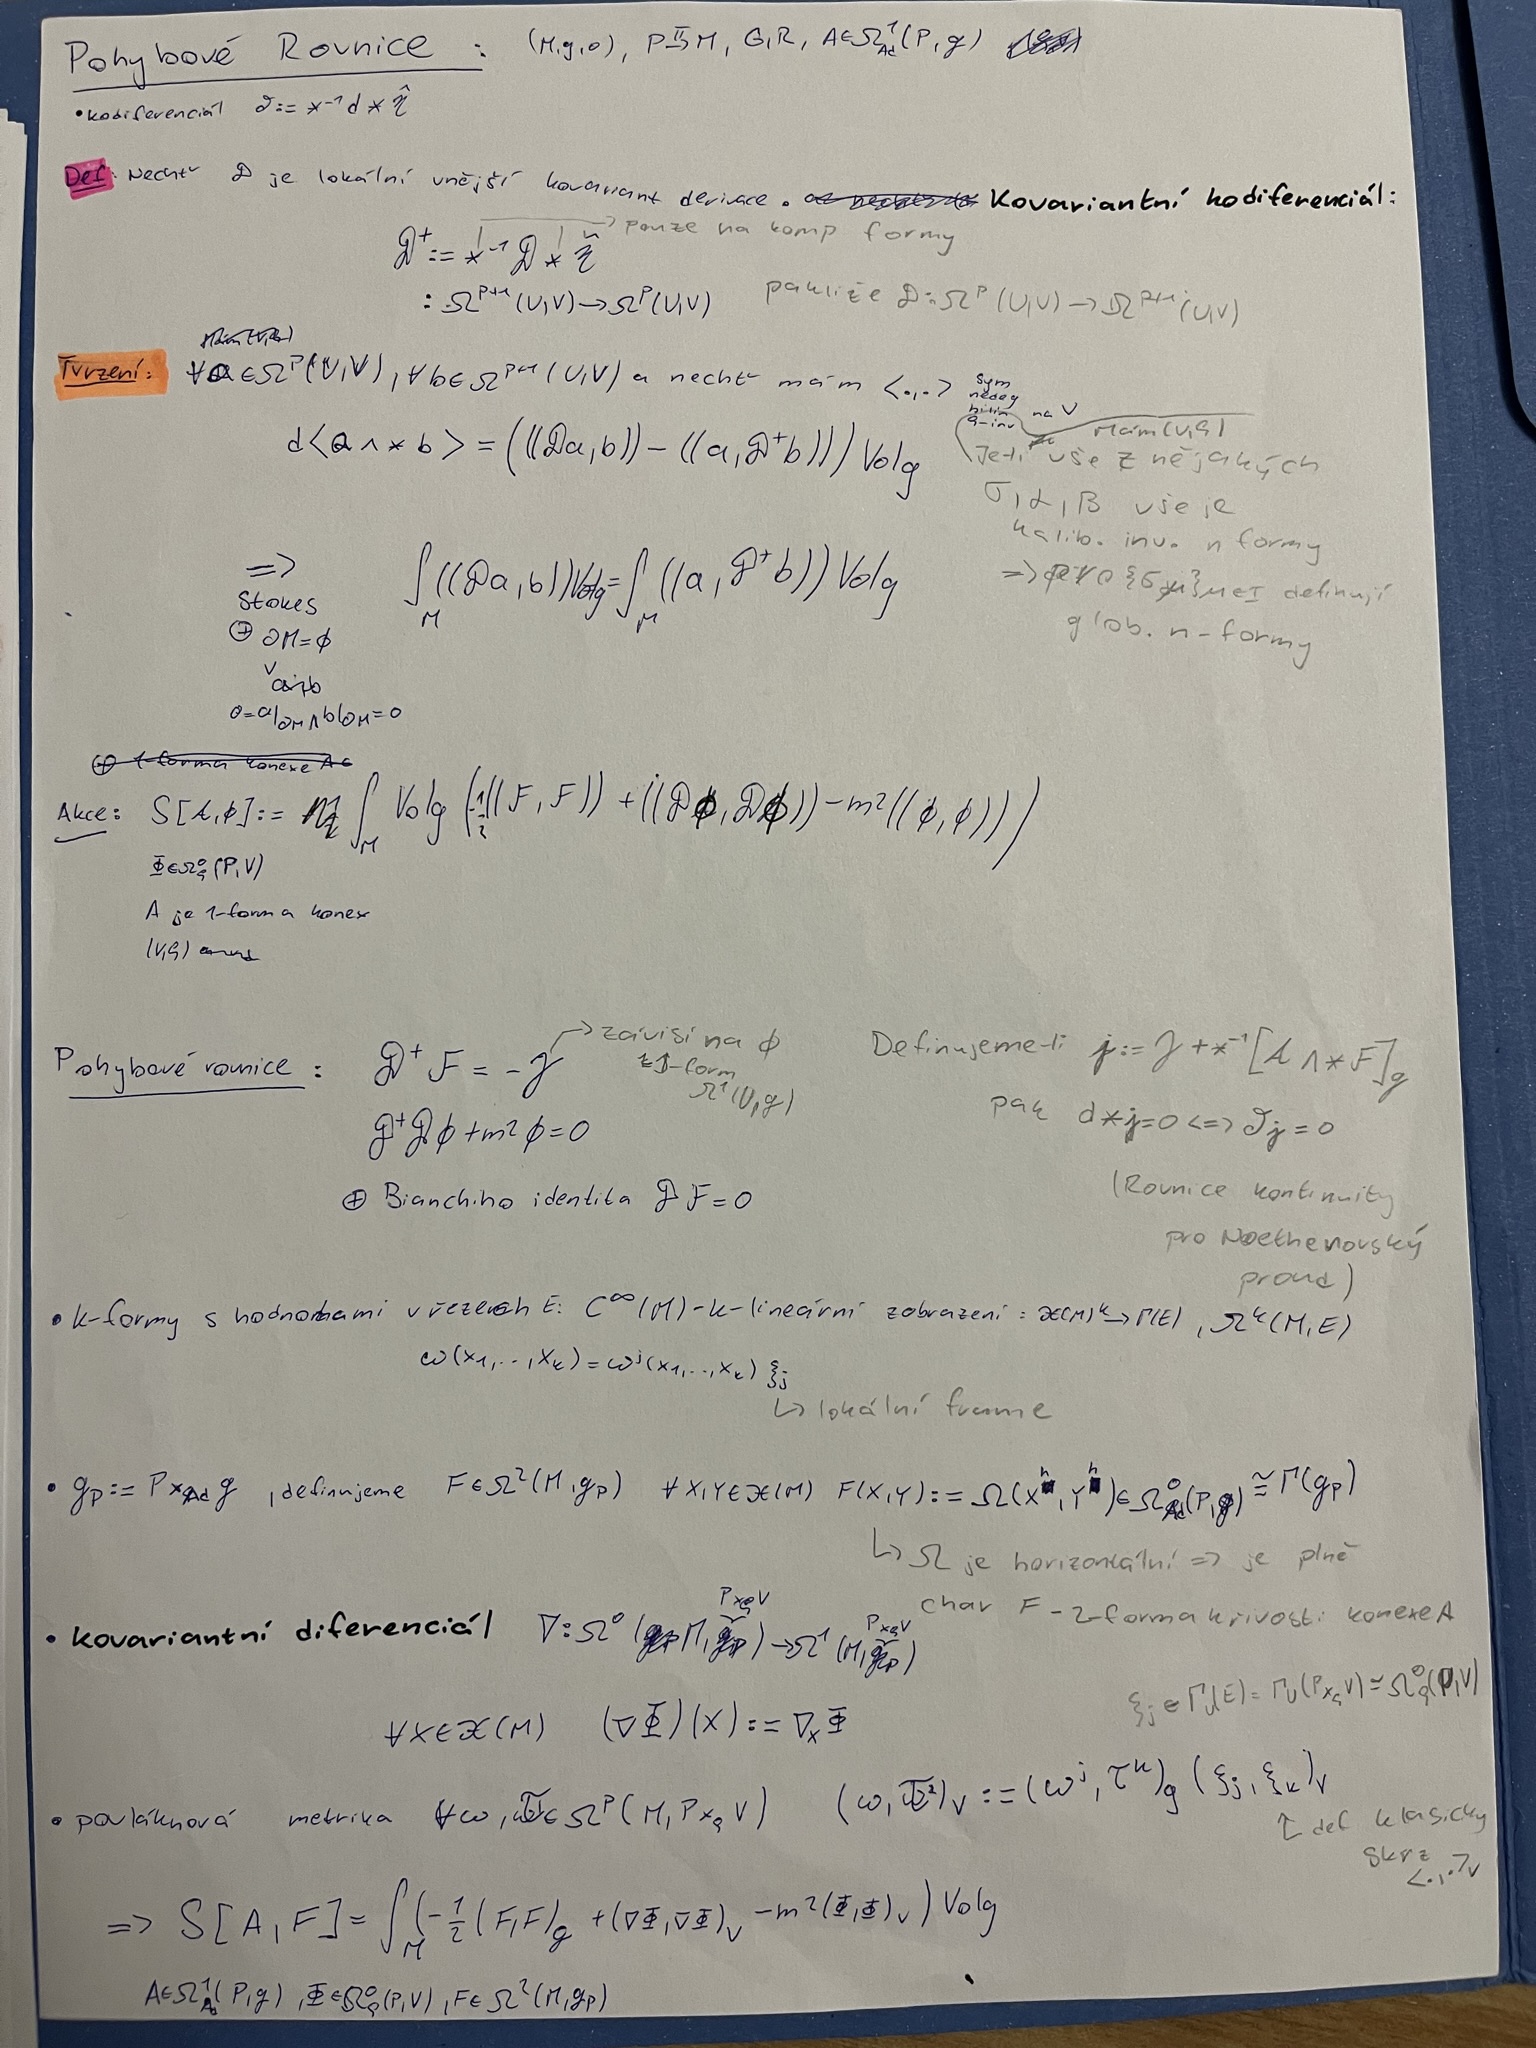 Pohybové Rovnice : (M,g,o), P→M, G,R, A∈Ω¹_Ad(P,g)
• kodiferenciál δ := *⁻¹ d * η̂
Def: Nechť D je lokální vnější kovariant derivace. Kovariantní kodiferenciál:
D⁺ := *⁻¹ D * η̂ → pouze na komp formy
: Ω^{p+1}(U,V) → Ω^p(U,V) pakliže D: Ω^p(U,V) → Ω^{p+1}(U,V)
Tvrzení: ∀a∈Ω^p(U,V), ∀b∈Ω^{p+1}(U,V) a nechť mám <.,.> sym nedeg G-inv na V
d<a∧*b> = (((Da,b)) − ((a,D⁺b))) Vol_g
Mám (V,G)
Je-li vše z nějakých
σ,α,β vše je
kalib. inv. n formy
=> pro {σ_μ}μ∈I definují
glob. n-formy
=> ∫_M ((Da,b)) Vol_g = ∫_M ((a,D⁺b)) Vol_g
Stokes
⊕ ∂M=∅
v
0=a|∂M ∧ b|∂M=0
Akce: S[A,ϕ] := ∫_M Vol_g (-1/2((F,F)) + ((Dϕ,Dϕ)) − m²((ϕ,ϕ)))
Φ∈Ω⁰_ϱ(P,V)
A je 1-forma konex
(V,G)
Pohybové rovnice : D⁺F = −J → závisí na ϕ
z 1-form
Ω¹(U,g)
D⁺Dϕ + m²ϕ = 0
⊕ Bianchiho identita DF = 0
Definujeme-li j := J + *⁻¹[A ∧ *F]_g
pak d*j=0 <=> δj = 0
(Rovnice kontinuity
pro Noetherovský
proud)
• k-formy s hodnotami v řezech E: C^∞(M)-k-lineární zobrazení : 𝔛(M)^k → Γ(E), Ω^k(M,E)
ω(X₁,..,X_k) = ω^j(X₁,..,X_k) ξ_j
↳ lokální frame
• g_P := P×_Ad g , definujeme F∈Ω²(M,g_P) ∀X,Y∈𝔛(M) F(X,Y) := Ω(X^h,Y^h)∈Ω⁰_Ad(P,g) ≅ Γ(g_P)
↳ Ω je horizontální => je plně
char F - 2-forma křivosti konexe A
• kovariantní diferenciál ∇: Ω⁰(M, P×_ϱV) → Ω¹(M, P×_ϱV)
∀X∈𝔛(M) (∇Φ)(X) := ∇_XΦ
ξ_j∈Γ_U(E) = Γ_U(P×_ϱV) ≅ Ω⁰_ϱ(P,V)
• povláknová metrika ∀ω,τ∈Ω^p(M,P×_ϱV) (ω,τ)_V := (ω^j,τ^k)_g (ξ_j,ξ_k)_V
↑ def klasicky
skrz
<.,.>_V
=> S[A,F] = ∫_M (−1/2 (F,F)_g + (∇Φ,∇Φ)_V − m²(Φ,Φ)_V) Vol_g
A∈Ω¹_Ad(P,g) , Φ∈Ω⁰_ϱ(P,V) , F∈Ω²(M,g_P)